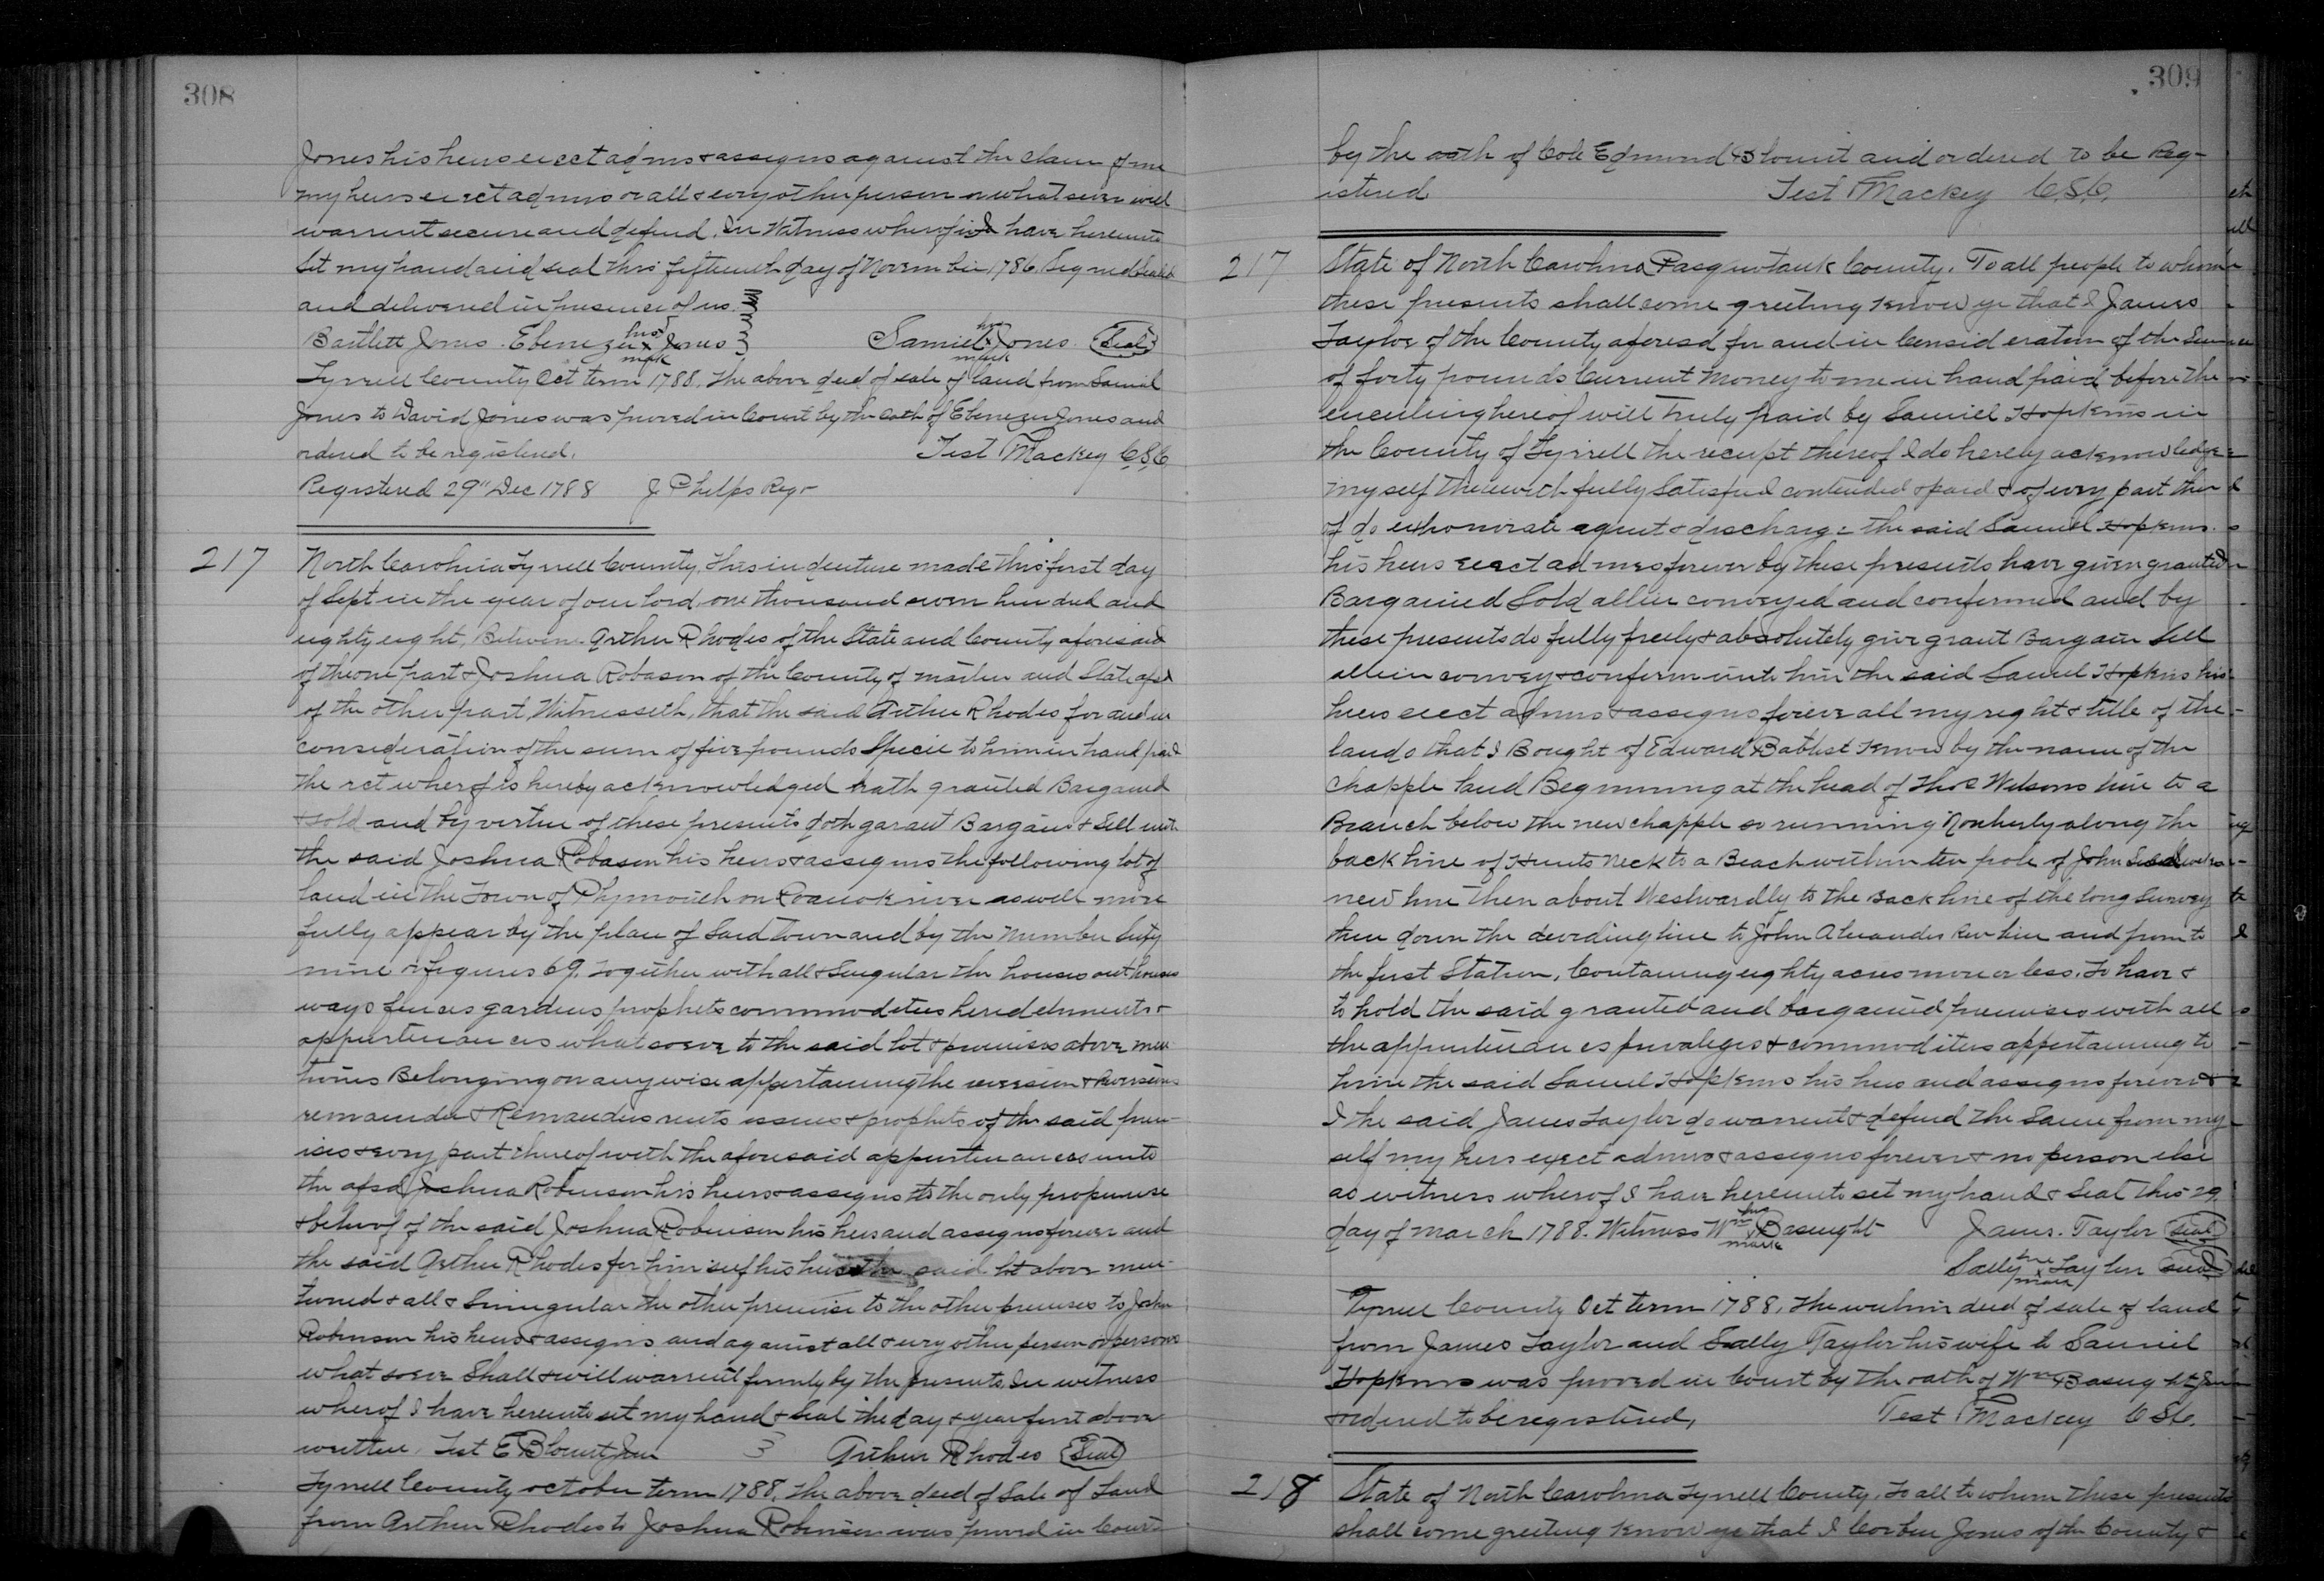 308
Jones his heirs exect adms & assigns against the claim of me
my heirs exect adms or all & evry other person or what soever will
warrent secure and defend. In Witness wherof I have hereunto
Set my hand and seal this fifteenth day of November 1786. Signed Seald
and delivered in presence of us.
Bartlett Jones. Ebenezer his x mark Jones Samuel his x mark Jones. Seal
Tyrrell County Oct term 1788, the above deed of sale of land from Samuel
Jones to David Jones was proved in Court by the oath of Ebenezer Jones and
ordered to be registered. Test Mackey C.S.C
Registered 29" Dec 1788 J Phelps Reg-
217 North Carolina Tyrrell County, This indenture made this first day
of Sept in the year of our lord, one thousand seven hundred and
eighty eight, Between Arther Rhodes of the State and County aforesaid
of the one part & Joshua Robason of the County of Martin and State afsd
of the other part, Witnesseth, that the said Arther Rhodes for and in
consideration of the sum of five pounds Specie to him in hand paid
the rct wherof is hereby acknowledged hath granted Bargained
& sold and by virtue of these presents doth garant Bargain & Sell unto
the said Joshua Robason his heirs & assigns the following lot of
land in the Town of Plymouth on Roanok river as well more
fully appear by the plan of Said Town and by the Number Sixty
nine or figures 69. Together with all & Singular the houses out houses
ways fences gardens prophets commodities hereditments &
appurtenances what soever to the said lot & premises above men
tiones Belonging or any wise appertaining the reversion & reversions
remainder & Remainders rents issues & prophets of the said prem-
ises & evry part thereof with the aforesaid appurtenances unto
the afsd Joshua Robinson his heirs & assigns to the only proper use
& behoof of the said Joshua Robinson his heirs and assigns forever and
the said Arther Rhodes for him self his heirs the said lot above men-
tioned & all & Sinugular the other premise to the other premises to Joshua
Robinson his heirs & assigns and against all & evry other person or persons
what soever Shall & will warrent firmly by the presents. In witness
wherof I have hereunto set my hand & Seal the day & year first above
written. Test E Blount Jun Arther Rhodes Seal
Tyrrell County october term 1788. The above deed of Sale of Land
from Arther Rhodes to Joshua Robinson was proved in Court
309
by the oath of Cole Edmund Blount and ordered to be Reg-
istered Test Mackey C.S.C.
217 State of North Carolina Pasquotank County. To all people to whom
these presents shall come greeting Know ye that I James
Taylor of the County aforesd for and in Consideration of the Sum
of forty pounds Current Money to me in hand paid before the
encealing hereof will truly paid by Samiel Hopkins in
the County of Tyrrell the receipt thereof I do hereby acknowledge
myself therewith fully Satisfied contended & paid & of evry part ther
of do exhonorate aquit & discharge the said Samuel Hopkins.
his heirs exect admrs forever by these presents have given granted
Bargained Sold allien conveyed and confermed and by
these presents do fully freely & absolutely give grant Bargain Sell
allien convey & conferm unto him the said Samuel Hopkins his
heirs exect admrs & assigns forever all my right & title of the
lands that I Bought of Edward Babtist Know by the name of the
Chapple land Beginning at the head of Thos Wilsons line to a
Branch below the new chapple so running Northerly along the
back line of Hunts Neck to a Beach within ten pole of John
new line then about Westwardly to the Back line of the long Survey
then down the deviding line to John Alexander Rev line and from to
the first Station, Containing eighty acres more or less. To have &
to hold the said granted and bargained premises with all
the appurtenances previleges & commodities appertaining to
him the said Samuel Hopkins his heirs and assigns forever &
I the said James Taylor do warrent & defend the Same from my
self my heirs exect admrs & assigns forever & no person else
as witness wherof I have hereunto set my hand & Seal this 29
day of March 1788. Witness Wm his x mark Basnight James. Taylor Seal
Sally her x mark Taylor Seal
Tyrrell County Oct term 1788, the within deed of sale of land
from James Taylor and Sally Taylor his wife to Samuel
Hopkins was proved in Court by the oath of Wm Basnight
& ordered to be registered, Test Mackey C.S.C.
218 State of North Carolina Tyrrell County, To all to whom these presents
shall come greeting Know ye that I Corben Jones of the County &